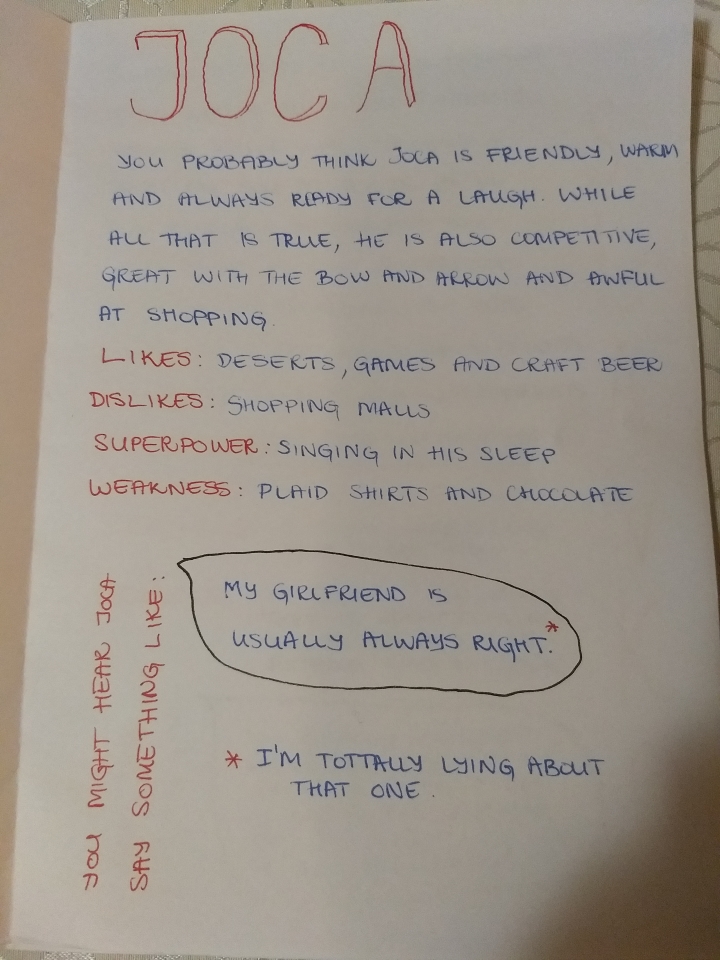 JOCA
YOU PROBABLY THINK JOCA IS FRIENDLY, WARM
AND ALWAYS READY FOR A LAUGH. WHILE
ALL THAT IS TRUE, HE IS ALSO COMPETITIVE,
GREAT WITH THE BOW AND ARROW AND AWFUL
AT SHOPPING.
LIKES: DESERTS, GAMES AND CRAFT BEER
DISLIKES: SHOPPING MALLS
SUPERPOWER: SINGING IN HIS SLEEP
WEAKNESS: PLAID SHIRTS AND CHOCOLATE
YOU MIGHT HEAR JOCA
SAY SOMETHING LIKE:
MY GIRLFRIEND IS
USUALLY ALWAYS RIGHT.*
* I'M TOTTALLY LYING ABOUT
THAT ONE.